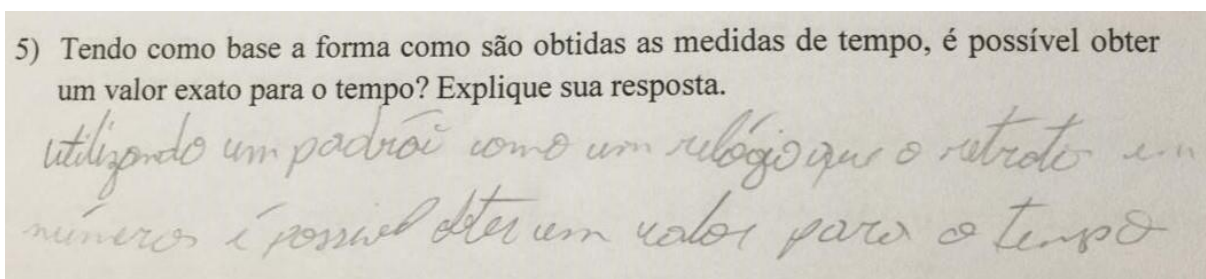 5) Tendo como base a forma como são obtidas as medidas de tempo, é possível obter
um valor exato para o tempo? Explique sua resposta.
utilizando um padrão como um relógio que o retrate em
números é possivel obter um valor para o tempo